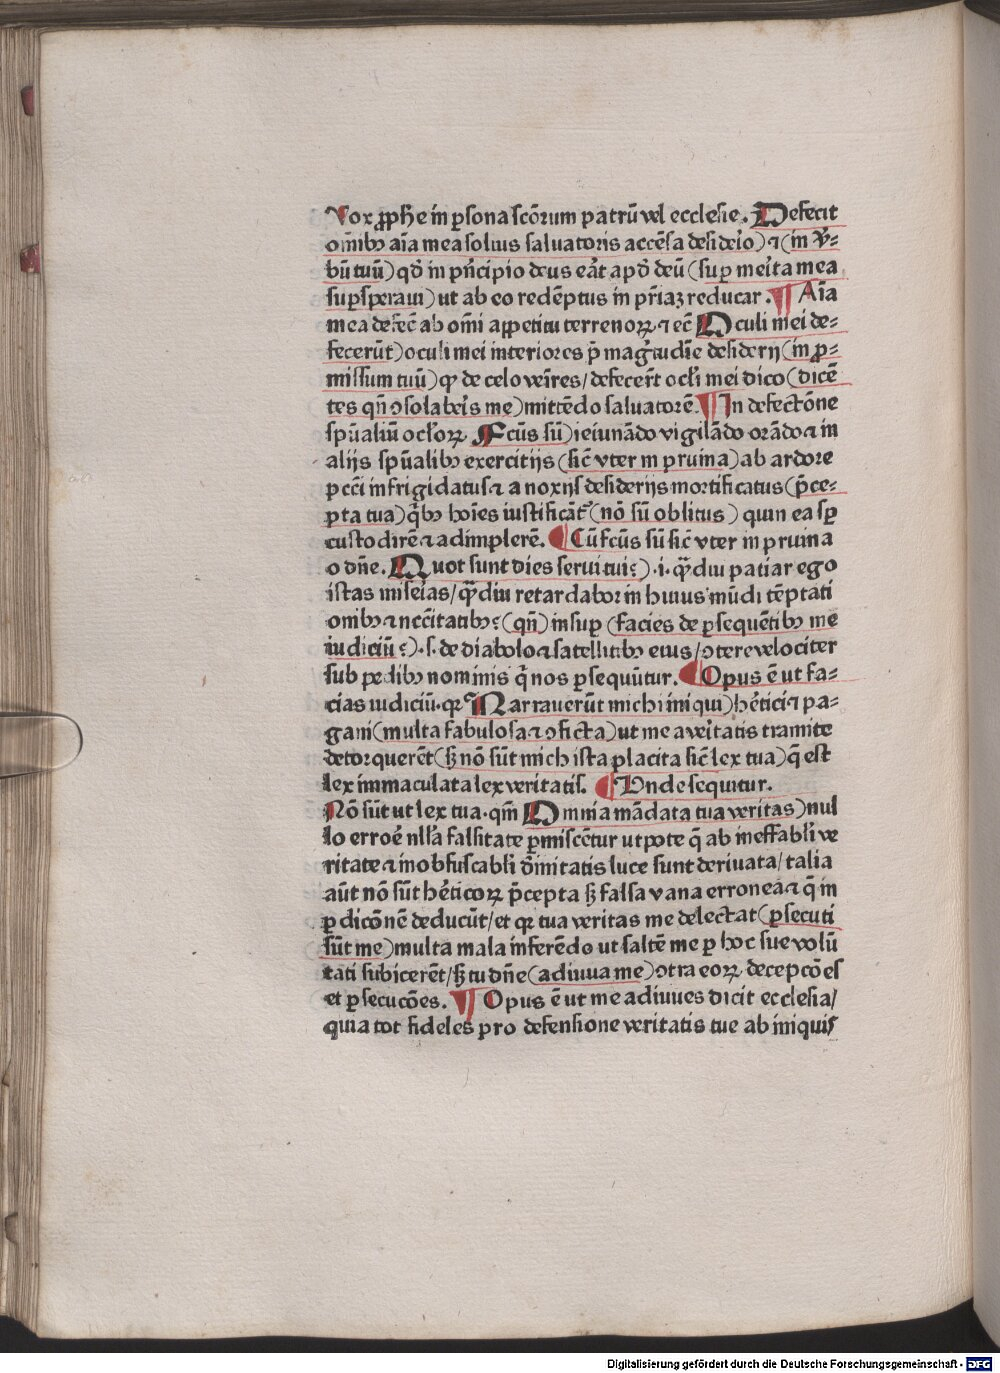 Vox ꝓph̄e in ꝑsona scōrum patrū vel ecclesie. Defecit
om̄ibꝫ aīa mea soluis saluatoris accēsa desideīo) ⁊ (in v̄-
bū tuū) qđ in pn̄cipio deus eāt apđ deū (suꝑ meīta mea
suꝑsperaui) ut ab eo redēptus in pr̄iaꝫ reducar. ¶ Aīa
mea defec̄ ab om̄i appetitu terrenoꝝ ⁊ ec̄ Oculi mei de-
fecerūt) oculi mei interiores p̄ maḡtudīe desiderij (in ꝓ-
missum tuū) ꝙ de celo veīres/ defecer̄t ocl̄i mei dico (dicē
tes qn̄ ↄsolabeīs me) mittēdo saluatorē. ¶ In defectōne
spūaliū ocl̄oꝝ. Fcūs sū) ieiunādo vigilādo orādo ⁊ in
alijs spūalibꝫ exercitijs (sic̄ vter in pruina) ab ardore
pcc̄i infrigidatus ⁊ a noxijs desiderijs mortificatus (p̄ce-
pta tua) q̄bꝫ hoīes iustificāt̄ (nō sū oblitus) quin ea sꝑ
custodirē ⁊ adimplerē. ¶ Cū fcūs sū sic̄ vter in pruina
o dn̄e. Quot sunt dies serui tui?) .i. ꝙ̄diu patiar ego
istas miseīas/ ꝙ̄diu retardaboꝛ in huius mūdi tēptati
onibꝫ ⁊ nccītatibꝫ? (qn̄) insuꝑ (facies de ꝑsequētibꝫ me
iudiciū?) .s. de diabolo ⁊ satellitibꝫ eius/ ↄtere velociter
sub pedibꝫ nominis q̄ nos ꝑsequūtur. ¶ Opus ē ut fa-
cias iudiciū. qꝛ Narrauerūt michi iniqui) hētici ⁊ pa-
gani (multa fabulosa ⁊ ↄficta) ut me a veītatis tramite
detorquerēt (sꝫ nō sūt mich ista placita sic̄ lex tua) q̄ est
lex immaculata lex veritatis. ¶ Unde sequitur.
Nō sūt ut lex tua. qm̄ Omnia mādata tua veritas) nul
lo erroē nll̄a falsitate ꝑmiscētur utpote q̄ ab ineffabli ve
ritate ⁊ inobfuscabli dīnitatis luce sunt deriuata/ talia
aūt nō sūt hēticoꝝ p̄cepta sꝫ falsa vana erronea ⁊ q̄ in
ꝑdicōnē deducūt/ et qꝛ tua veritas me delectat (ꝑsecuti
sūt me) multa mala inferēdo ut saltē me ꝑ hoc sue volū
tati subicerēt/ sꝫ tu dn̄e (adiuua me) ↄtra eoꝝ decepcōes
et ꝑsecucōes. ¶ Opus ē ut me adiuues dicit ecclesia/
quia tot fideles pro defensione veritatis tue ab iniquis
Digitalisierung gefördert durch die Deutsche Forschungsgemeinschaft - DFG